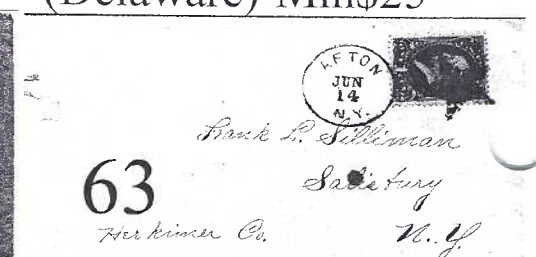 (Delaware) Min$25
AFTON
JUN
14
N.Y.
Frank L. Silliman
Salisbury
63
Herkimer Co.
N.Y.